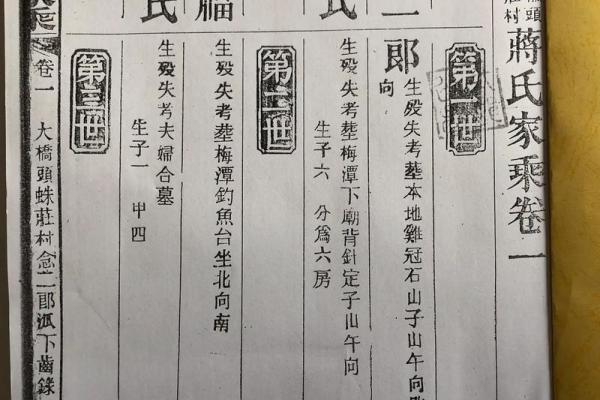 橋頭
莊村
蔣氏家乘卷一
第一世
二郎
生殁失考塟本地雞冠石山子山午向
向
氏
生殁失考塟梅潭下廟背針定子山午向
生子六 分爲六房
第二世
福
生殁失考塟梅潭釣魚台坐北向南
氏
生殁失考夫婦合墓
生子一 甲四
第三世
卷一 大橋頭蛛莊村念二郎派下齒錄